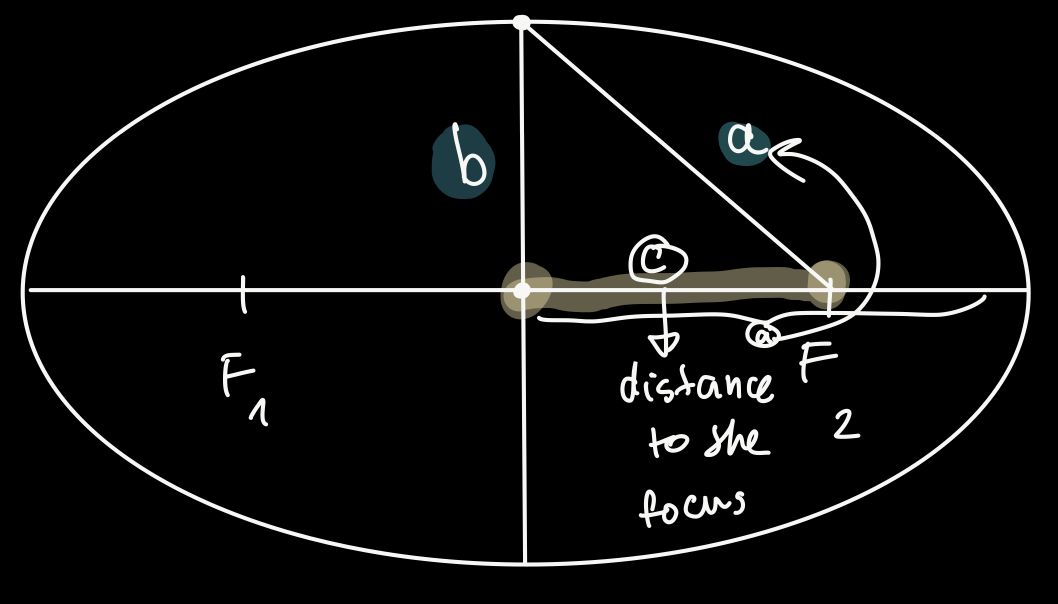 b
a
c
a
F1
F2
distance
to the
focus